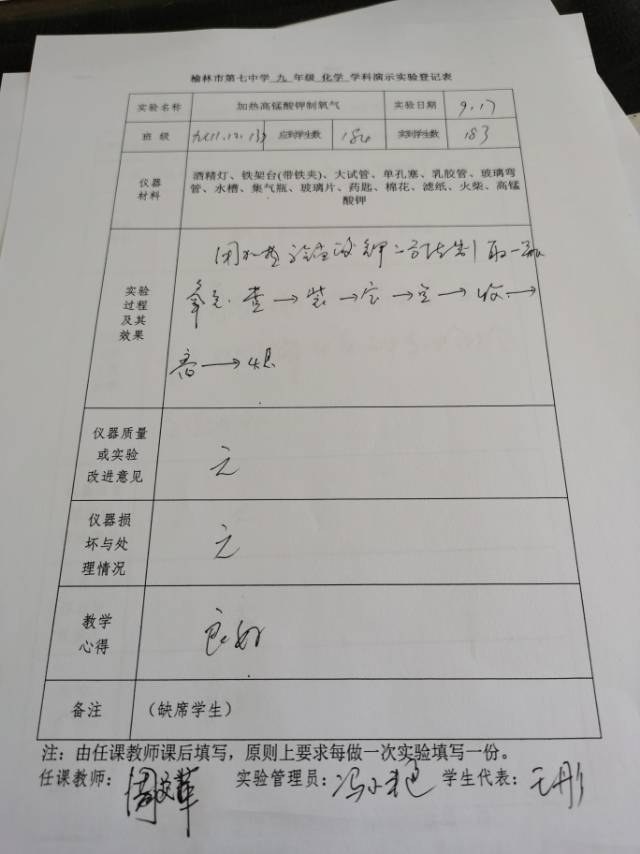 榆林市第七中学 九 年级 化学 学科演示实验登记表
实验名称 加热高锰酸钾制氧气 实验日期 9.17
班 级 九11.12.13 应到学生数 184 实到学生数 183
仪器 材料 酒精灯、铁架台(带铁夹)、大试管、单孔塞、乳胶管、玻璃弯
管、水槽、集气瓶、玻璃片、药匙、棉花、滤纸、火柴、高锰
酸钾
实验 过程 及其 效果
用加热 钾 制取一瓶
查→装→定→点→收→
离→熄
仪器质量 或实验 改进意见 无
仪器损 坏与处 理情况 无
教学 心得 良好
备注 (缺席学生)
注：由任课教师课后填写，原则上要求每做一次实验填写一份。
任课教师： 实验管理员：冯小艳 学生代表：王彤